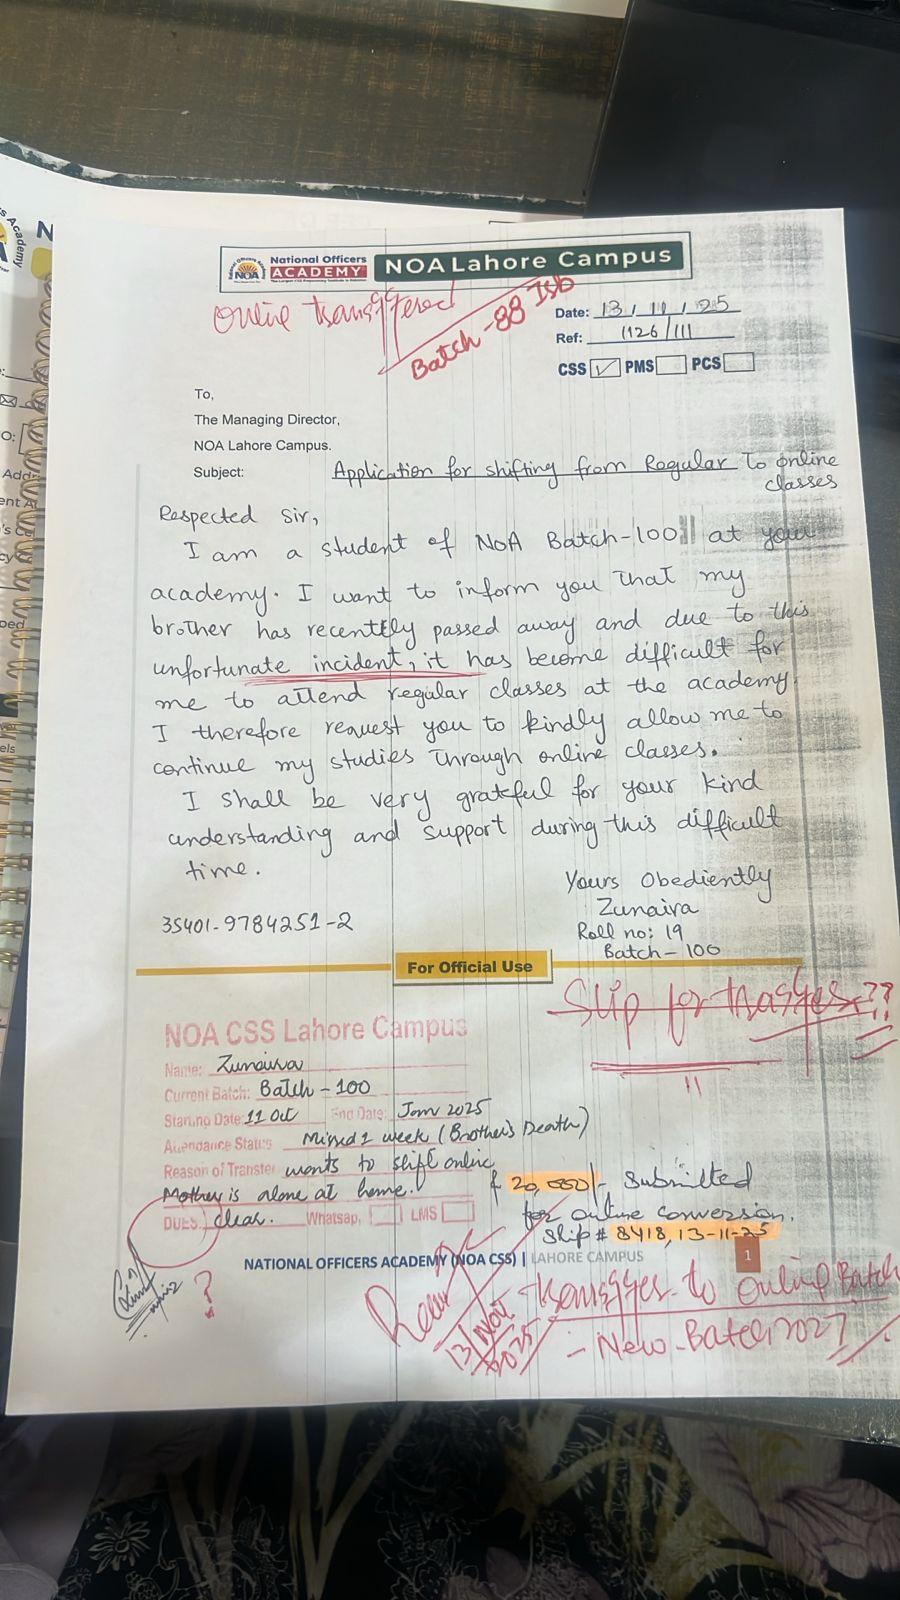 National Officers
ACADEMY
NOA
NOA Lahore Campus
Online transferred
Batch-88 Isb
Date: 13/11/25
Ref: 1126/111
CSS ✓ PMS PCS
To,
The Managing Director,
NOA Lahore Campus.
Subject: Application for shifting from Regular To online
classes
Respected Sir,
I am a student of NOA Batch-100 at your
academy. I want to inform you that my
brother has recently passed away and due to this
unfortunate incident, it has become difficult for
me to attend regular classes at the academy.
I therefore request you to kindly allow me to
continue my studies through online classes.
I shall be very grateful for your kind
understanding and support during this difficult
time.
Yours Obediently
Zunaira
35401-9784251-2
Roll no: 19
Batch-100
For Official Use
Slip for transfer??
NOA CSS Lahore Campus
Name: Zunaira
Current Batch: Batch-100
Starting Date: 11 Oct End Date: Jan 2025
Attendance Status Missed 1 week (Brother's Death)
Reason of Transfer wants to shift online
Mother is alone at home.
DUES: clear. Whatsapp, LMS
20,000/- Submitted
for online conversion.
Slip # 8418, 13-11-25
NATIONAL OFFICERS ACADEMY (NOA CSS) | LAHORE CAMPUS
1
?
13/Nov
2025
transfer to Online Batch
- New-Batch 2027